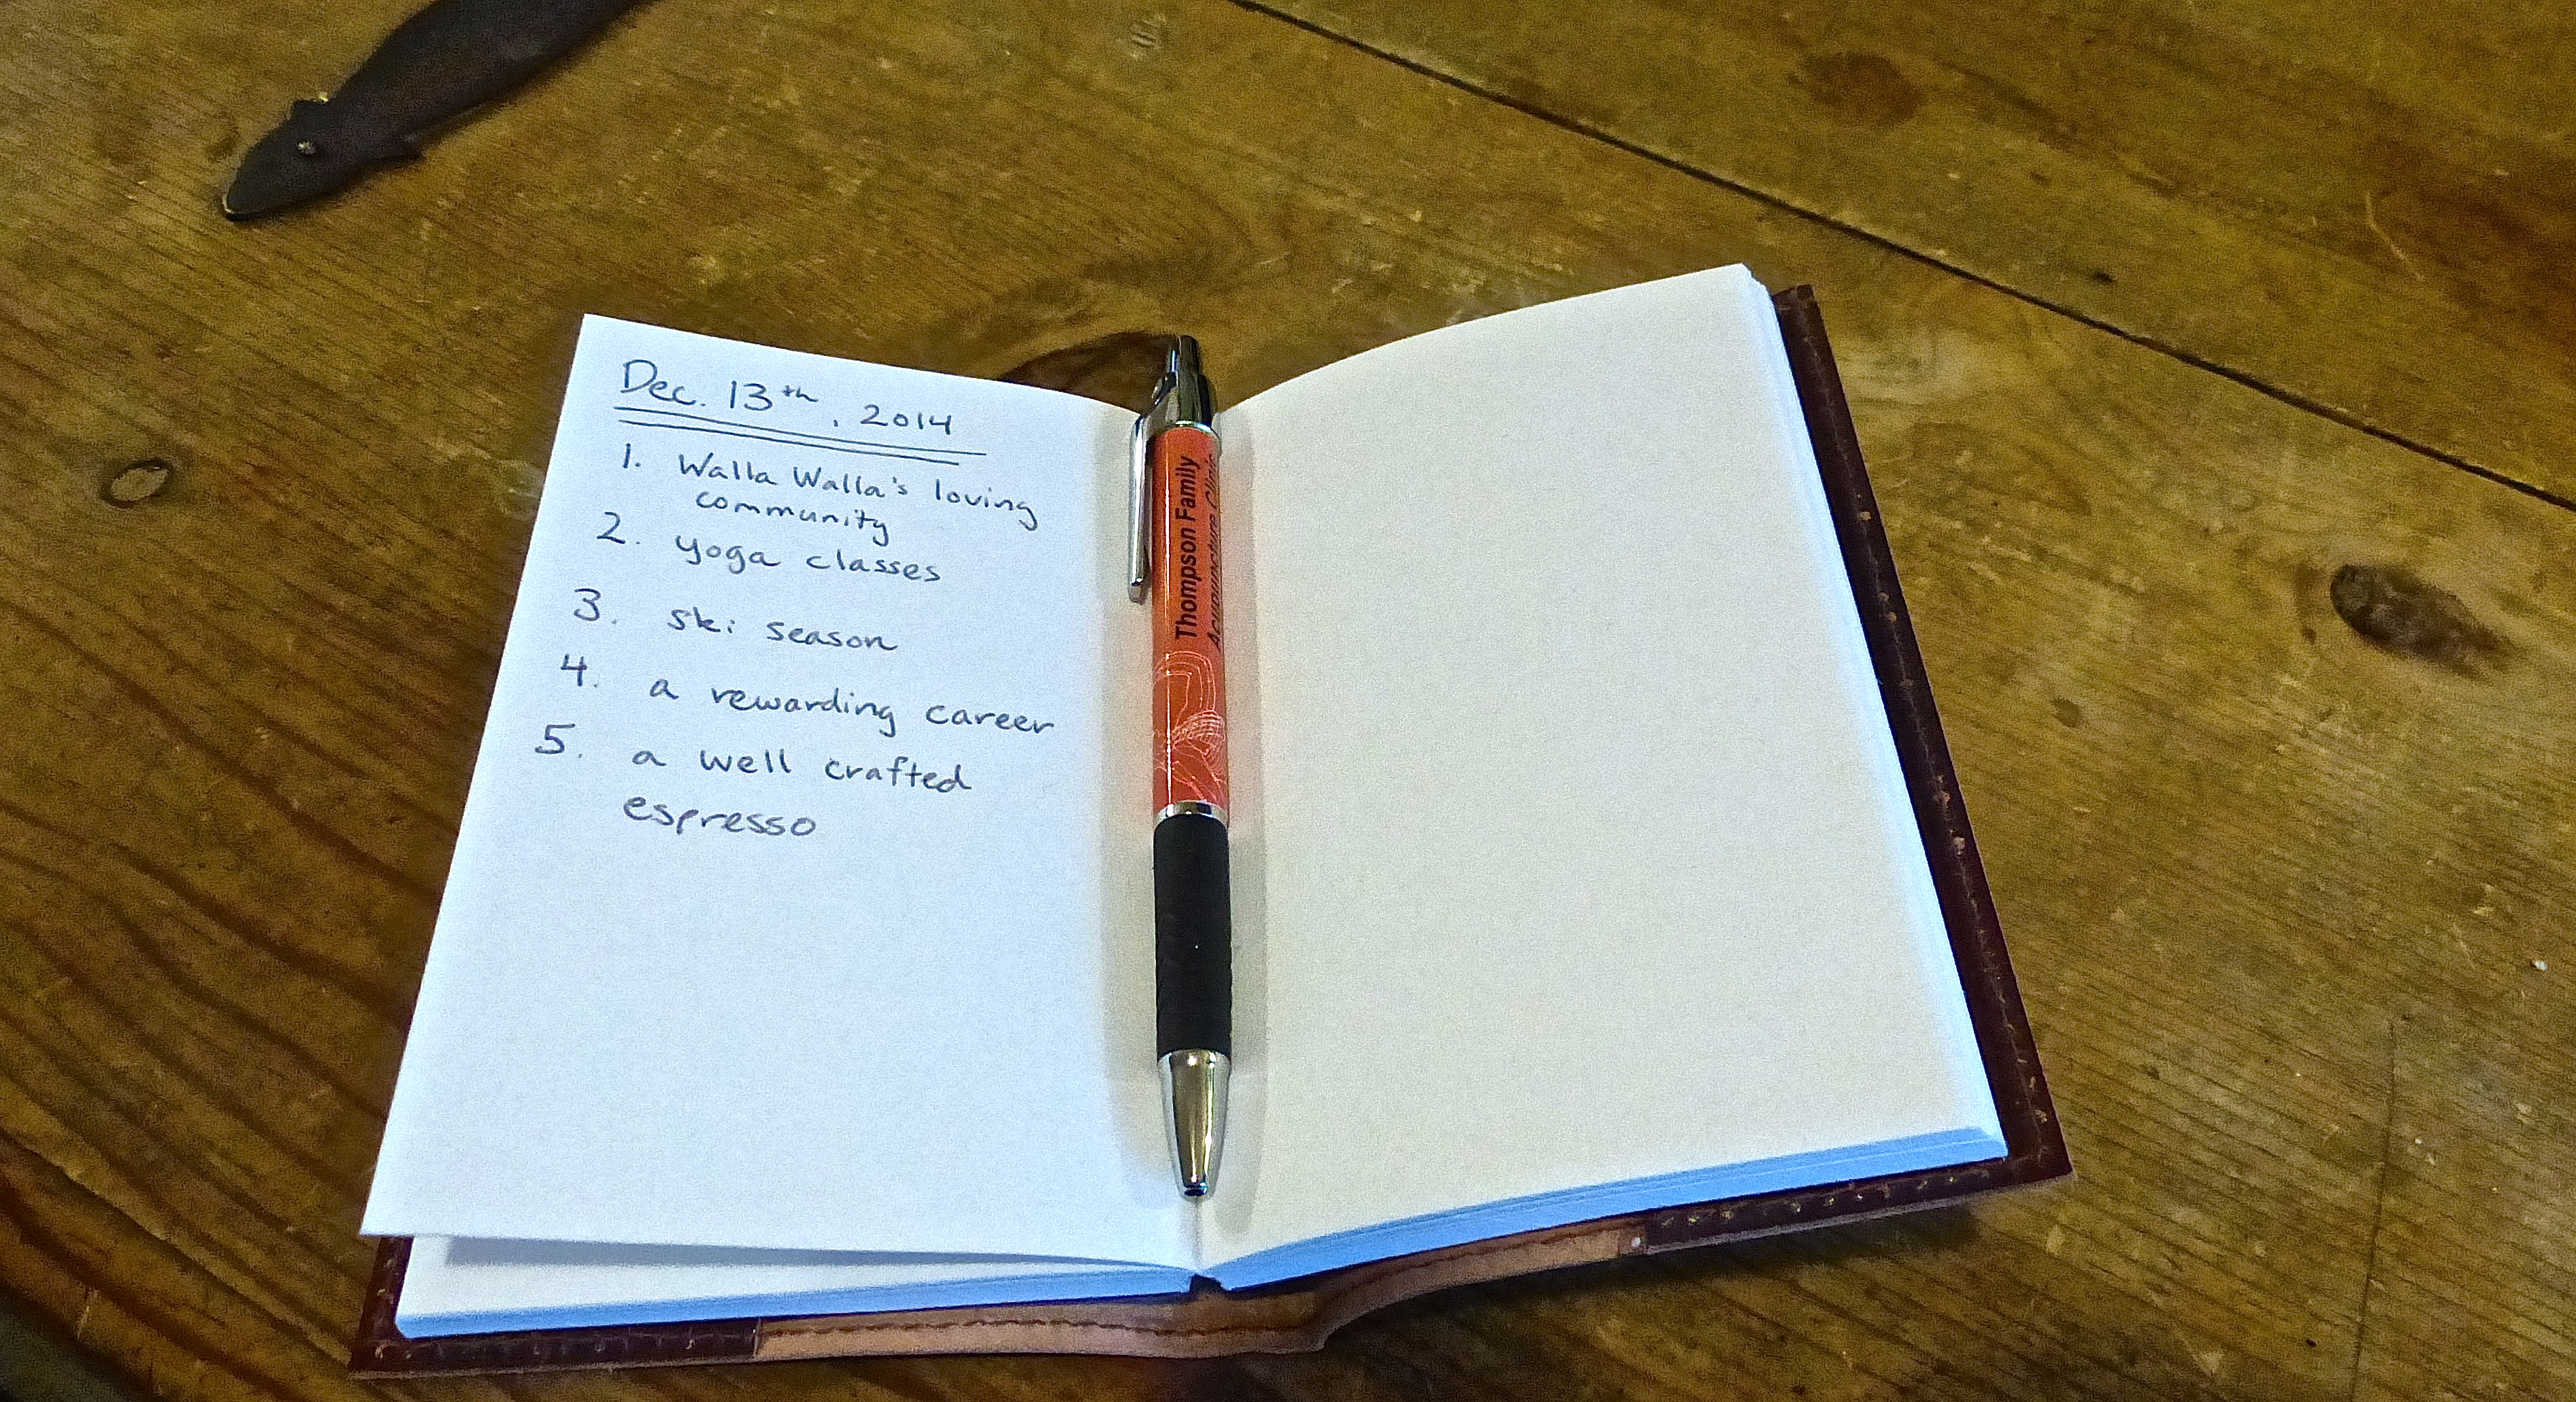 Dec. 13th, 2014
1. Walla Walla's loving
community
2. yoga classes
3. ski season
4. a rewarding career
5. a well crafted
espresso
Thompson Family
Acupuncture Clinic